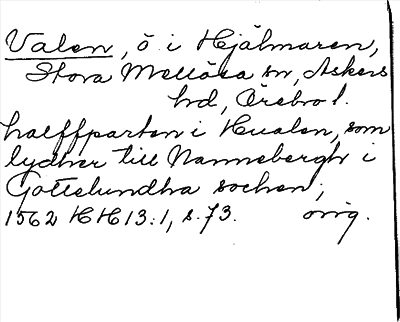 Valen, ö i Hjälmaren,
Stora Mellösa sn, Askers
hd, Örebro l.
halffparten i Hualen, som
lydher till Nannebergh i
Gottelundha sochen;
1562 HH 13:1, s. 73. orig.